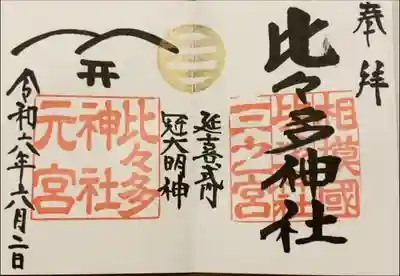 奉拝
比々多神社
相模國
三之宮
延喜式内
冠大明神
比々多
神社
元宮
令和六年六月二日